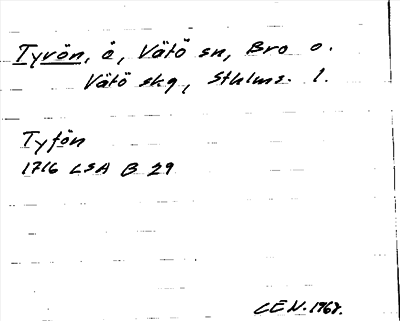 Tyvön, å, Vätö sn, Bro o.
Vätö skg, Sthlms. l.
Tyfön
1716 LSA B 29
CEN. 196